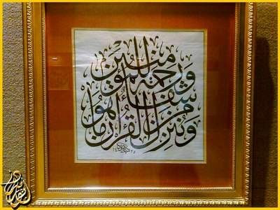 وننزل من القرآن ما هو شفاء ورحمة للمؤمنين